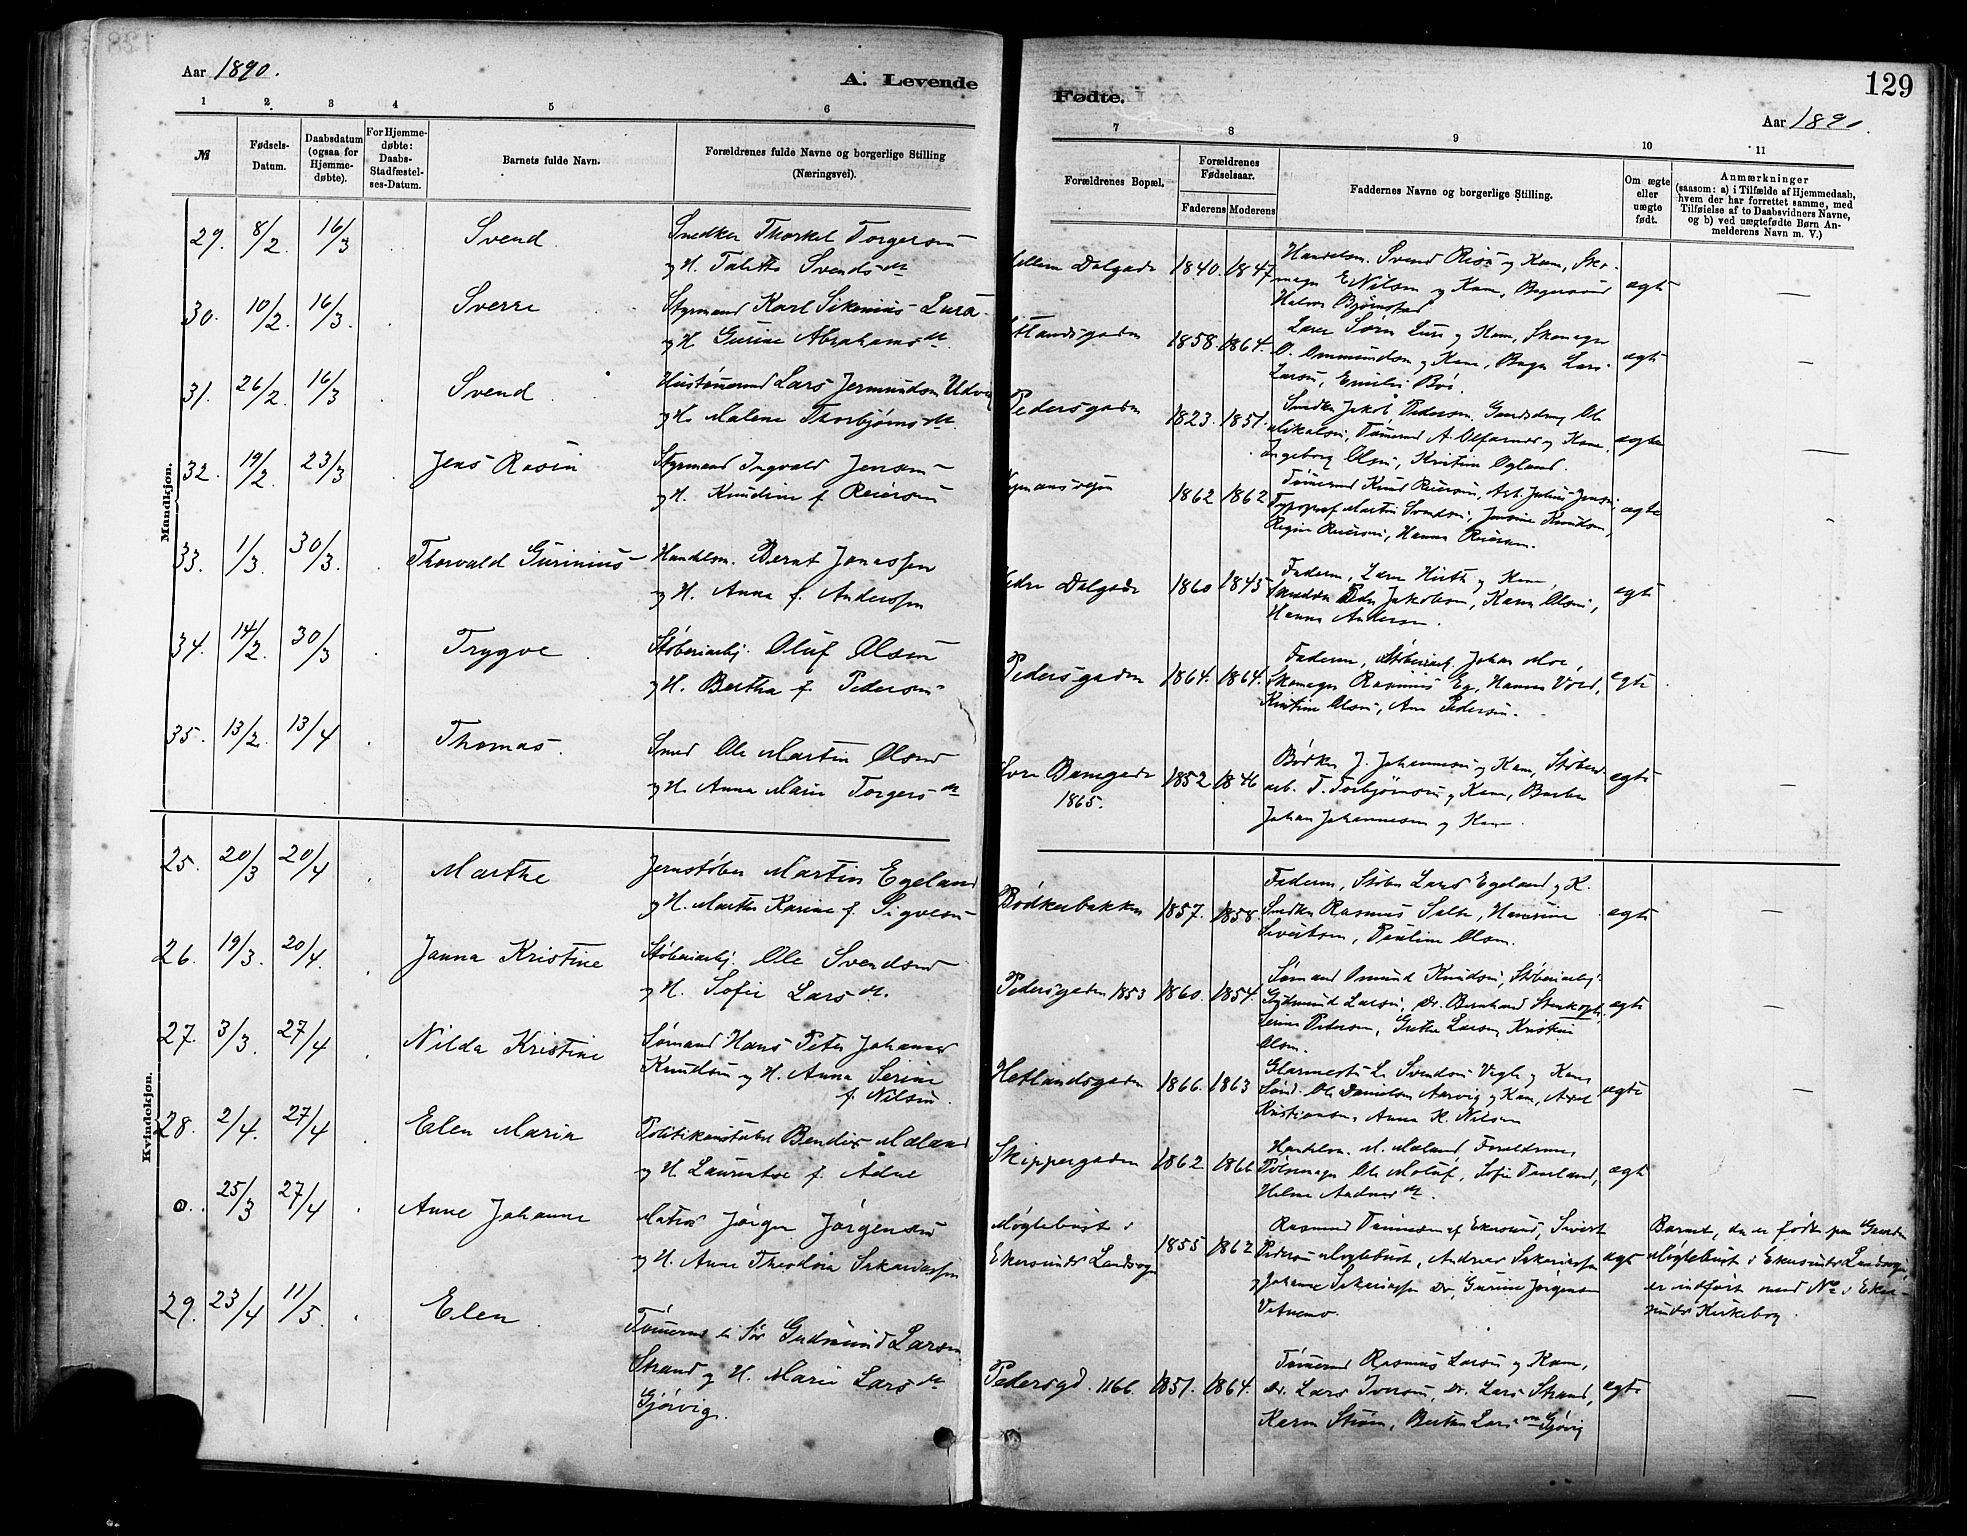 Aar 1890.
A. Levende
1 2. 3 4 5 6
№
Fødsels-
Datum.
Daabsdatum
(ogsaa for
Hjemme-
døbte).
For Hjemme-
døbte:
Daabs-
Stadfæstel-
ses-Datum.
Barnets fulde Navn.
Forældrenes fulde Navne og borgerlige Stilling
(Næringsvei).
Mandkjøn.
29. 8/2 16/3 Svend. Snedker Thorkel Torgersen
og H. Talette Svendsdtr
30. 10/2. 16/3. Sverre Styrmand Karl Sikenius Lura
og H. Gurine Abrahamsdtr.
31. 26/2. 16/3 Svend Hustømmermd Lars Jermundsen
og H. Malene Thorbjørnsdtr.
32. 19/2 23/3 Jens Rosin Styrmand Ingvald Jensen
og H. Knudine f. Reiersen
33. 1/3. 30/3. Thorvald Gurinius Handelsm. Bernt Jonassen
og H. Anna f. Anderssen
34. 14/2. 30/3 Trygve Støberiarbj. Oluf Olsen
og H. Bertha f. Pedersen
35. 13/2. 13/4 Thomas. Smed Ole Martin Olsen
og H. Anna Marie Torgersdtr
Kvindekjøn.
25. 20/3 20/4 Marthe Jernstøber Martin Egeland
og H. Marthe Karine f. Sigvesen
26. 19/3. 20/4. Janna Kristine Støberiarbj. Ole Svendsen
og H. Sofie Larsdtr.
27. 3/3. 27/4 Nilda Kristine Sømand Hans Peter Johannes
Knudsen og H. Anna Serine
f. Nilsen.
28. 2/4. 27/4 Elen Maria Politikonstabel Bendix Maland
og H. Laurentse f. Adne
0. 25/3 27/4 Anne Johanne Matros Jørgen Jørgensen
og H. Anne Theodora Sakariassen
29. 23/4 11/5. Elen Tømmermd Gudmund Larsen
Strand og H. Marie Larsdtr
Gjørvig.
129
Fødte.
Aar 1890.
7 8 9 10 11
Forældrenes Bopæl.
Forældrenes
Fødselsaar.
Faderens Moderens
Faddernes Navne og borgerlige Stilling.
Om ægte
eller
uægte
født.
Anmærkninger
(saasom: a) i Tilfælde af Hjemmedaab,
hvem der har forrettet samme, med
Tilføielse af to Daabsvidners Navne,
og b) ved uægtefødte Børn An-
melderens Navn m. V.)
Mellem Dalgade 1840. 1847 Handelsm. Svend Risa og Kone, Sko-
mager E Nilsen og Kone,
Halvor Bjørnstad ægte —
Hetlandsgaden 1858. 1864. Lærer Søren Lura og Kone, Skomager
O. Ommundsen og Kone, Bager Lars
Larsen, Emilie Bøe. ægte —
Pedersgaden 1823. 1851. Snedker Jakob Pedersen, Ole
Mikalsen, Tømmermd A. og Kone,
Ingeborg Olsen, Kristine Ogland. ægte —
1862 1862 Tømmermd Knud Reiersen, Arb. Julius Jensen,
Typograf Martin Svendsen, Jensine Knudsen,
Regine Reiersen, Hanna Reiersen. ægte
Nedre Dalgade 1860 1845 Faderen, Lærer Hirth og Kone,
Peder Jakobsen, Karen Olsen,
Hanna Andersen. ægte
Pedersgaden 1864. 1864. Faderen, Støberiarb. Johan Moe,
Skomager Rasmus Eg, Hanna
Kristine Olsen, Ane Pedersen. ægte
Øvre Banegade 1865. 1852 1846 Bødker J. Johannesen og Kone, Støberi-
arb. T. Torbjørnsen og Kone, Barber
Johan Johannesen og Kone. ægte —
Bødkerbakken 1857. 1858. Faderen, Støber Lars Egeland og K.
Snedker Rasmus Salte, Hansine
Sivertsen, Pauline Olsen. ægte —
Pedersgaden 1853 1860. 1854. Sømand Osmund Knudsen, Støberiarbj.
Gudmund Larsen, Dr. Bernhard Stenkopf,
Serine Pedersen, Grethe Larsen, Kristine
Olsen. ægte —
Hetlandsgaden 1866. 1863 Glarmester L. Svendsen Vigle og Kone,
Sømd. Ole Danielsen Aarvig og Kone, Axel
Kristiansen, Anna K. Nilsen ægte —
Skippergaden 1862. 1866 Handelsm. M. Maland, Forældrene,
Pølsemager Ole Moluf, Sofie
Helene ægte
Møglebust i
Ekersunds Landsogn 1855 1862 Rasmus Tønnesen af Ekersund, Sivert
Pedersen Møglebust, Andreas Sakariassen
og Johanne Sakariassen Dr, Gurine Jørgensen
ægte Barnet, der er født paa Gaarden
Møglebust i Ekersunds Landsogn,
er indført med No i Eker-
sunds Kirkebog.
Pedersgd. 1166. 1851. 1864. Tømmermd Rasmus Larsen og Kone,
Dr. Lars Iversen, Dr. Lars Strand,
Karen Strøm, Berthe Larsdtr Gjørvig ægte —